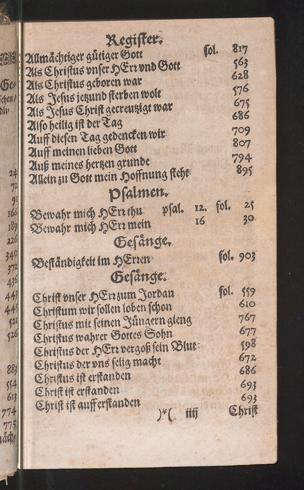 Register.
Allmächtiger gütiger Gott fol. 817
Als Christus vnser HErr vnd Gott 563
Als Christus geboren war 628
Als Jesus jetzund sterben wolt 576
Als Jesus Christ gecreutzigt war 675
Also heilig ist der Tag 686
Auff diesen Tag gedencken wir 709
Auff meinen lieben Gott 807
Auß meines hertzen grunde 794
Allein zu Gott mein Hoffnung steht 895
Psalmen.
Bewahr mich HErr thu psal. 12. fol. 25
Bewahr mich HErr mein 16 30
Gesänge.
Beständigkeit im HErren fol. 903
Gesänge.
Christ vnser HErr zum Jordan fol. 559
Christum wir sollen loben schon 610
Christus mit seinen Jüngern gieng 767
Christus wahrer Gottes Sohn 677
Christus der HErr vergoß sein Blut 598
Christus der vns selig macht 672
Christus ist erstanden 686
Christ ist erstanden 693
Christ ist aufferstanden 693
)*( iiij Christ